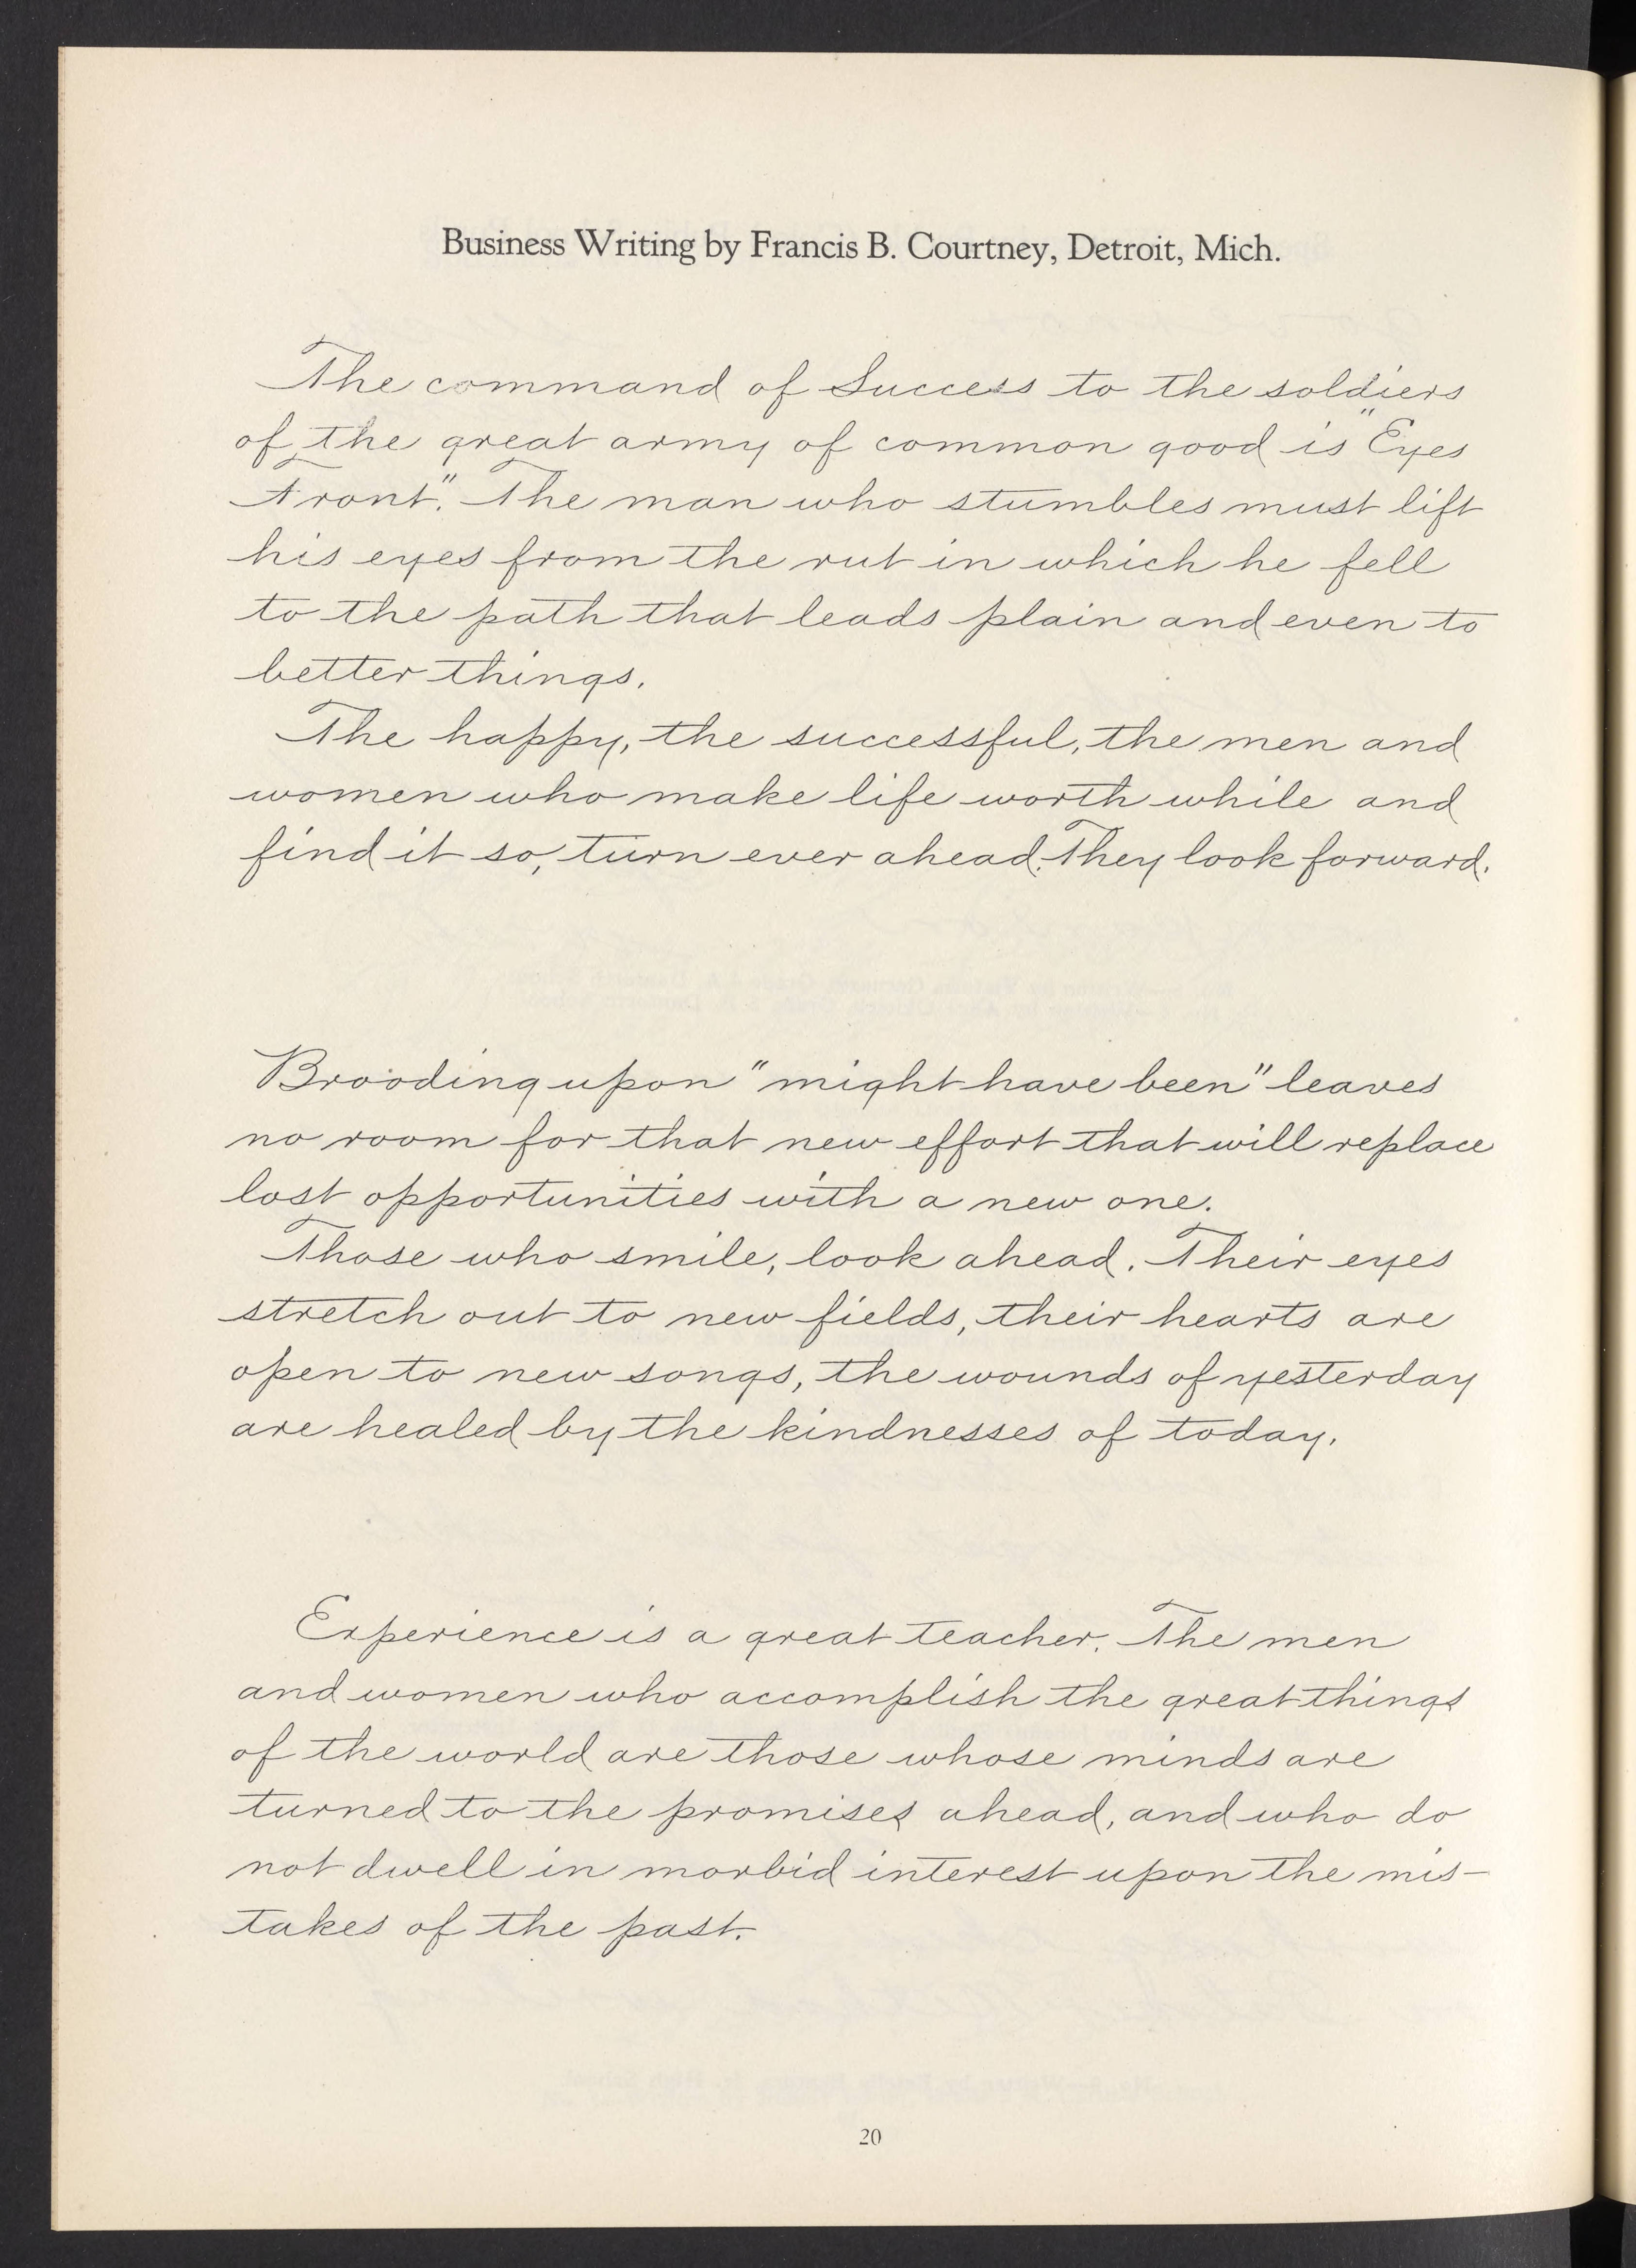 Business Writing by Francis B. Courtney, Detroit, Mich.
The command of Success to the soldiers
of the great army of common good is "Eyes
Front". The man who stumbles must lift
his eyes from the rut in which he fell
to the path that leads plain and even to
better things.
The happy, the successful, the men and
women who make life worth while and
find it so, turn ever ahead. They look forward.
Brooding upon "might have been" leaves
no room for that new effort that will replace
lost opportunities with a new one.
Those who smile, look ahead. Their eyes
stretch out to new fields, their hearts are
open to new songs, the wounds of yesterday
are healed by the kindnesses of today.
Experience is a great teacher. The men
and women who accomplish the great things
of the world are those whose minds are
turned to the promises ahead, and who do
not dwell in morbid interest upon the mis-
takes of the past.
20